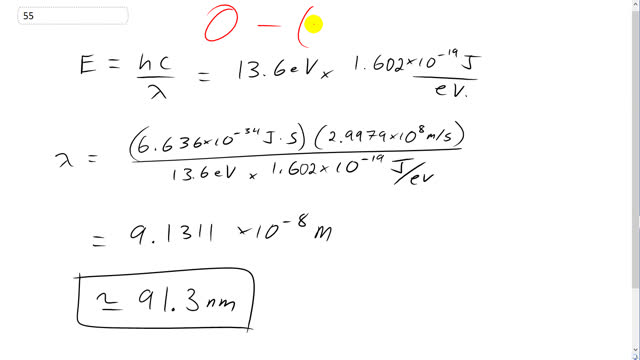 55
0 - (
E = hc/λ = 13.6eV × 1.602×10⁻¹⁹ J/eV.
λ = (6.636×10⁻³⁴ J·S) (2.9979×10⁸ m/s) / 13.6eV × 1.602×10⁻¹⁹ J/eV
= 9.1311 ×10⁻⁸ m
≃ 91.3 nm